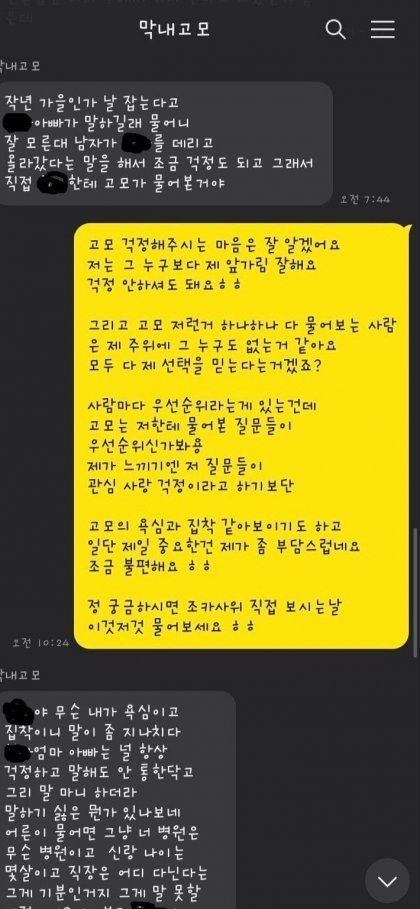 막내고모
막내고모
작년 가을인가 날 잡는다고
아빠가 말하길래 물어니
잘 모른대 남자가 를 데리고
올라갔다는 말을 해서 조금 걱정도 되고 그래서
직접 한테 고모가 물어본거야
오전 7:44
고모 걱정해주시는 마음은 잘 알겠어요
저는 그 누구보다 제 앞가림 잘해요
걱정 안하셔도 돼요ㅎㅎ
그리고 고모 저런거 하나하나 다 물어보는 사람
은 제 주위에 그 누구도 없는거 같아요
모두 다 제 선택을 믿는다는거겠죠?
사람마다 우선순위라는게 있는건데
고모는 저한테 물어본 질문들이
우선순위신가봐용
제가 느끼기엔 저 질문들이
관심 사랑 걱정이라고 하기보단
고모의 욕심과 집착 같아보이기도 하고
일단 제일 중요한건 제가 좀 부담스럽네요
조금 불편해요 ㅎㅎ
정 궁금하시면 조카사위 직접 보시는날
이것저것 물어보세요 ㅎㅎ
오전 10:24
막내고모
야 무슨 내가 욕심이고
집착이니 말이 좀 지나치다
엄마 아빠는 널 항상
걱정하고 말해도 안 통한닥고
그리 말 마니 하더라
말하기 싫은 뭔가 있나보네
어른이 물어면 그냥 너 병원은
무슨 병원이고 신랑 나이는
몇살이고 직장은 어디 다닌다는
그게 기분인거지 그게 말 못할